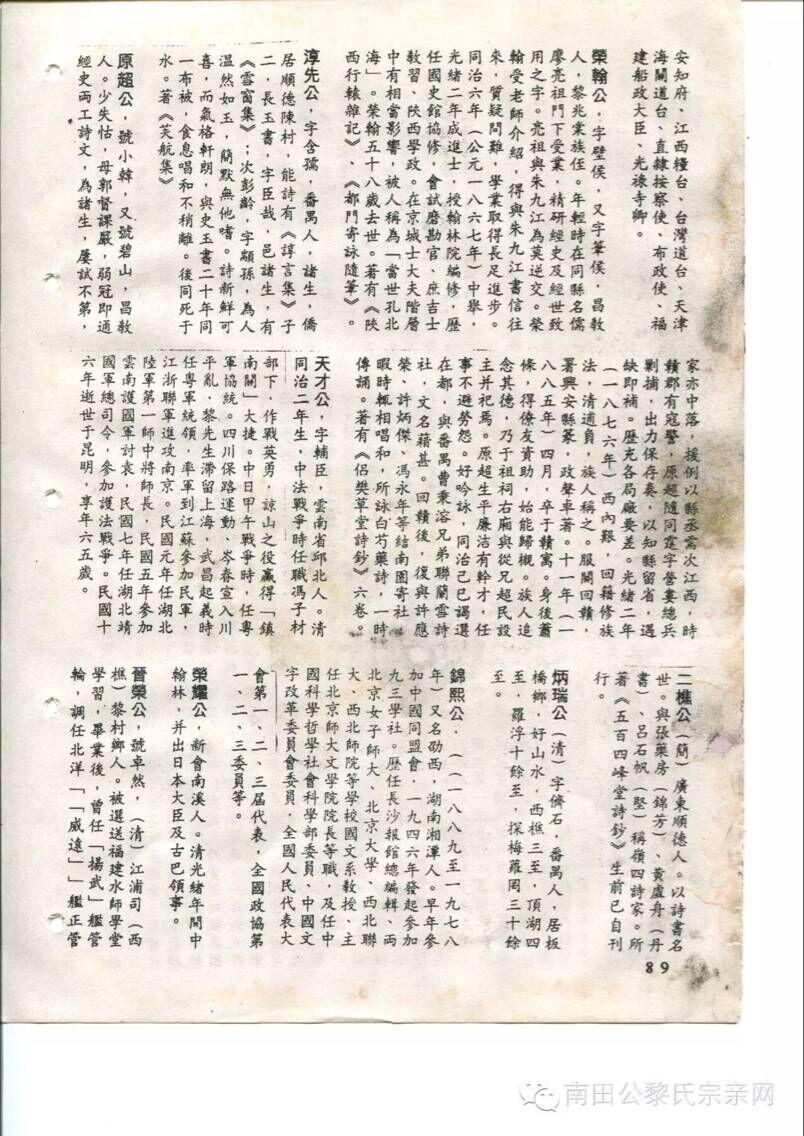 安知府、江西糧台、台灣道台、天津
海關道台、直隸按察使、布政使、福
建船政大臣、光祿寺卿。
榮翰公,字壁侯,又字筆侯,昌教
人,黎兆棠族侄。年輕時在同縣名儒
廖亮祖門下受業,精研經史及經世致
用之字。亮祖與朱九江為莫逆交。榮
翰受老師介紹,得與朱九江書信往
來,質疑問難,學業取得長足進步。
同治六年(公元一八六七年)中舉,
光緒二年成進士,授翰林院編修,歷
任國史館協修、會試磨勘官、庶吉士
教習、陝西學政。在京城士大夫階層
中有相當影響,被人稱為「當世孔北
海」。榮翰五十八歲去世。著有《陝
西行轅雜記》、《都門寄詠隨筆》。
淳先公,字含孺,番禺人,諸生,僑
居順德陳村,能詩有《諄言集》子
二,長玉書,字臣哉,邑諸生,有
《雪窗集》;次彭齡,字顓孫,為人
温然如玉,簡默無他嗜。詩新鮮可
喜,而氣格軒朗,與史玉書二十年同
一布被,食息唱和不稍離。後同死于
水。著《芙航集》
原超公,號小韓,又號碧山,昌教
人。少失怙,母郭督課嚴,弱冠即通
經史両工詩文,為諸生,屢試不第,
家亦中落,援例以縣丞需次江西,時
贛郡有寇警,原超隨同霆字營婁總兵
剿捕,出力保存奏,以知縣留省,遇
缺即補。歷充各局廠要差。光緒二年
(一八七六年)西內艱,回籍修族
法,清逋負,族人稱之。服闋回贛,
署興安縣篆,政聲卓著。十一年(一
八八五年)四月,卒于贛寓。身後蕭
條,得僚友資助,始能歸櫬。族人追
念其德,乃于祖祠右廂與從兄超民設
主并祀焉。原超生平廉洁有幹才,任
事不避勞怨。好吟詠,同治己巳謁選
在都,與番禺曹秉溶兄弟聯蘭雪詩
社,文名藉甚。回贛後,復與許應
榮、許炳傑、馮永年等結南園寄社,
暇時輒相唱和,所詠白芍藥詩,一時
傳誦。著有《侶樊草堂詩鈔》六卷。
天才公,字輔臣,雲南省邱北人。清
同治二年生,中法戰爭時任職馮子材
部下,作戰英勇,諒山之役贏得「鎮
南關」大捷。中日甲午戰爭時,任粵
軍協統。四川保路運動、岑春宣入川
平亂,黎先生滯留上海,武昌起義時
任粵軍統領,率軍到江蘇參加民軍,
江浙聯軍進攻南京。民國元年任湖北
陸軍第一師中將師長,民國五年參加
雲南護國軍討袁,民國七年任湖北靖
國軍總司令,參加護法戰爭。民國十
六年逝世于昆明,享年六五歲。
二樵公(簡)廣東順德人。以詩書名
世。與張藥房(錦芳)、黃虛舟(丹
書)、呂石帆(堅)稱領四詩家。所
著《五百四峰堂詩鈔》生前已自刊
行。
炳瑞公(清)字儕石,番禺人,居板
橋鄉,好山水,西樵三至,頂湖四
至,羅浮十餘至,探梅蘿岡三十餘
至。
錦熙公.((一八八九至一九七八
年)又名劭西,湖南湘潭人。早年參
加中國同盟會,一九四六年發起參加
九三學社。歷任長沙報館總編輯、両
北京女子師大、北京大學、西北聯
大、西北師院等學校國文系教授、主
任北京師大文學院院長等職,及任中
國科學哲學社會科學部委員、中國文
字改革委員會委員,全國人民代表大
會第一、二、三屆代表,全國政協第
一、二、三委員等。
榮耀公,新會南溪人。清光緒年間中
翰林,并出日本大臣及古巴領事。
晉榮公,號卓然,(清)江浦司(西
樵)黎村鄉人。被選送福建水師學堂
學習,畢業後,曾任「揚武」艦管
輪,調任北洋「「威遠」」艦正管
89
南田公黎氏宗亲网